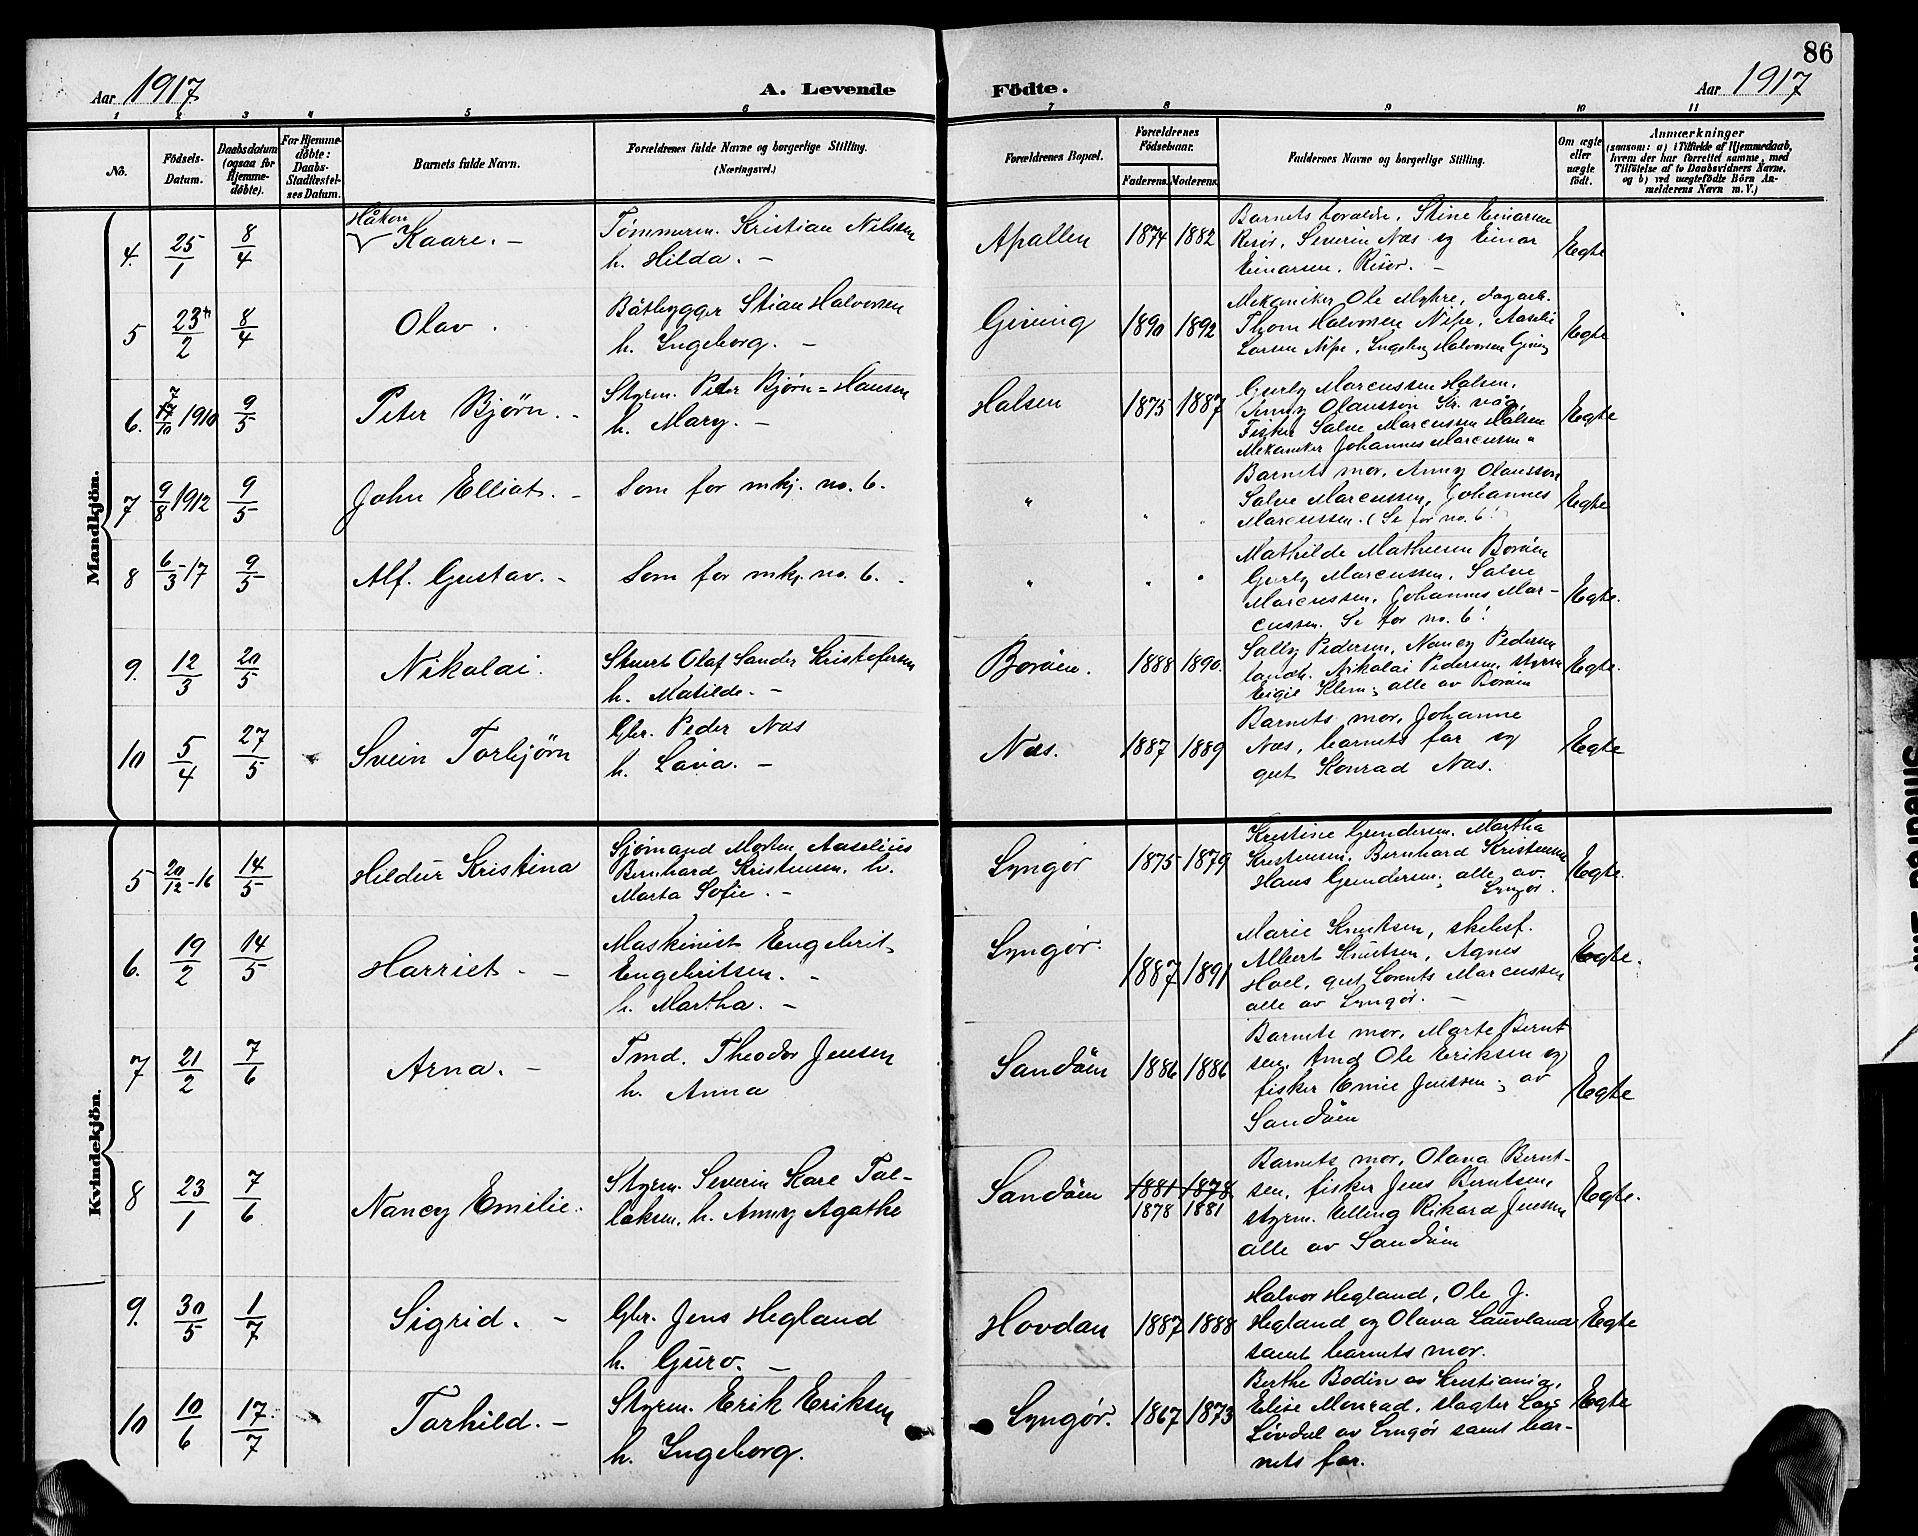 86
Aar 1917
A. Levende
Födte.
Aar 1917
1 2 3 4 5 6 7 8 9 10 11
No.
Födsels-
Datum.
Daabsdatum
(ogsaa for
Hjemme-
döbte).
For Hjemme-
döbte:
Daabs-
Stadfæstel-
ses Datum.
Barnets fulde Navn.
Forældrenes fulde Navne og borgerlige Stilling.
(Næringsvei.)
Forældrenes Bopæl.
Forældrenes
Födselsaar.
Faderens.
Moderens.
Faddernes Navne og borgerlige Stilling.
Om ægte
eller
uægte
födt.
Anmærkninger
(saasom: a) i Tilfælde af Hjemmedaab,
hvem der har forrettet samme, med
Tilföielse af to Daabsvidners Navne,
og b) ved uægtefödte Börn An-
melderens Navn m. V.)
Mandkjön.
4. 25/1 8/4
Håkon
Kaare. -
Tömmerm. Kristian Nilssen
h. Hilda. -
Apallen 1874 1882
Barnets forældre, Stine Einarsen
Risør, Severin Næs og Einar
Einarsen, Risør. -
Ægte
5 23/2 8/4
Olav.
Båtbygger Stian Halvorsen
h. Ingeborg. -
Giving 1890 1892
Mekaniker Ole Myhre, dagarb.
Thom Halvorsen Nipe, Aaselie
Larsen Nipe, Ingeborg Halvorsen Giving
Ægte
6. 7/10 1910 9/5
Peter Bjørn. -
Styrm. Peder Bjørn=Hansen
h. Mary. -
Halsen 1875 1887
Gurly Marcussen Halsen,
Anny Olausson
Fisker Salve Marcussen Halsen
Mekaniker Johannes Marcussen "
Ægte
7 9/8 1912 9/5
John Elliot. -
Som for mkj. no. 6.
" " "
Barnets mor, Anny Olausson
Salve Marcussen, Johannes
Marcussen. (Se for no. 6!)
Ægte
8 6/3-17 9/5
Alf. Gustav. -
Som for mkj. no. 6. -
" " "
Mathilde Mathiesen Borøen
Gurly Marcussen, Salve
Marcussen, Johannes Mar-
cussen. Se for no. 6!
Ægte.
9. 12/3 20/5
Nikolai.
Stuert Olaf Sander Kristofersen
h. Matilde. -
Borøen. 1888 1890.
Sally Pedersen, Nancy Pedersen
landh. Nikolai Pedersen, styrm
Eigil Klem; alle av Borøen
Ægte.
10 5/4 27/5
Svein Torbjørn
Gbr. Peder Næs
h. Lava. -
Næs. 1887 1889
Barnets mor, Johanne
Næs, barnets far og
gut Konrad Næs.
Ægte
Kvindekjön.
5 20/12-16 14/5
Hildur Kristina
Sjømand Morten Aaselius
Bernhard Kristensen, h.
Marta Sofie. -
Lyngør 1875 1879
Kristine Gundersen, Martha
Kristensen, Bernhard Kristensen
Hans Gundersen; alle av
Lyngør.
Ægte.
6. 19/2 14/5
Harriet. -
Maskinist Engebrit
Engebritsen. -
h. Martha. -
Lyngør. 1887 1891
Marie Knutsen, skebsf.
Albert Knutsen, Agnes
Hoel, gut Lorents Marcussen
alle av Lyngør. -
Ægte.
7 21/2 7/6
Arna. -
Tmd. Theodor Jensen
h. Anna
Sandøen 1886 1886
Barnets mor, Marte Bernt-
sen, tmd Ole Eriksen og
fisker Emil Jenssen; av
Sandøen
Ægte
8 23/1 7/6
Nancy Emilie.
Styrm. Severin Kare Tal-
laksen, h. Anny Agathe
Sandøen 1881 1878
1878 1881
Barnets mor, Olava Bernt-
sen, fisker Jens Berntsen,
styrm. Elling Rikard Jenssen
alle av Sandøen
Ægte.
9. 30/5 1/7
Sigrid. -
Gbr. Jens Hegland
h. Guro. -
Hovdan 1887 1888
Halvor Hegland, Ole J.
Hegland og Olava Lauvland
samt barnets mor.
Ægte
10 10/6 17/7
Torhild. -
Styrm. Erik Eriksen
h. Ingeborg.
Lyngør. 1867 1873
Berthe Bodin av Kristiania,
Elise Monrad, slagter Lars
Løvdal av Lyngør samt bar-
nets far.
Ægte